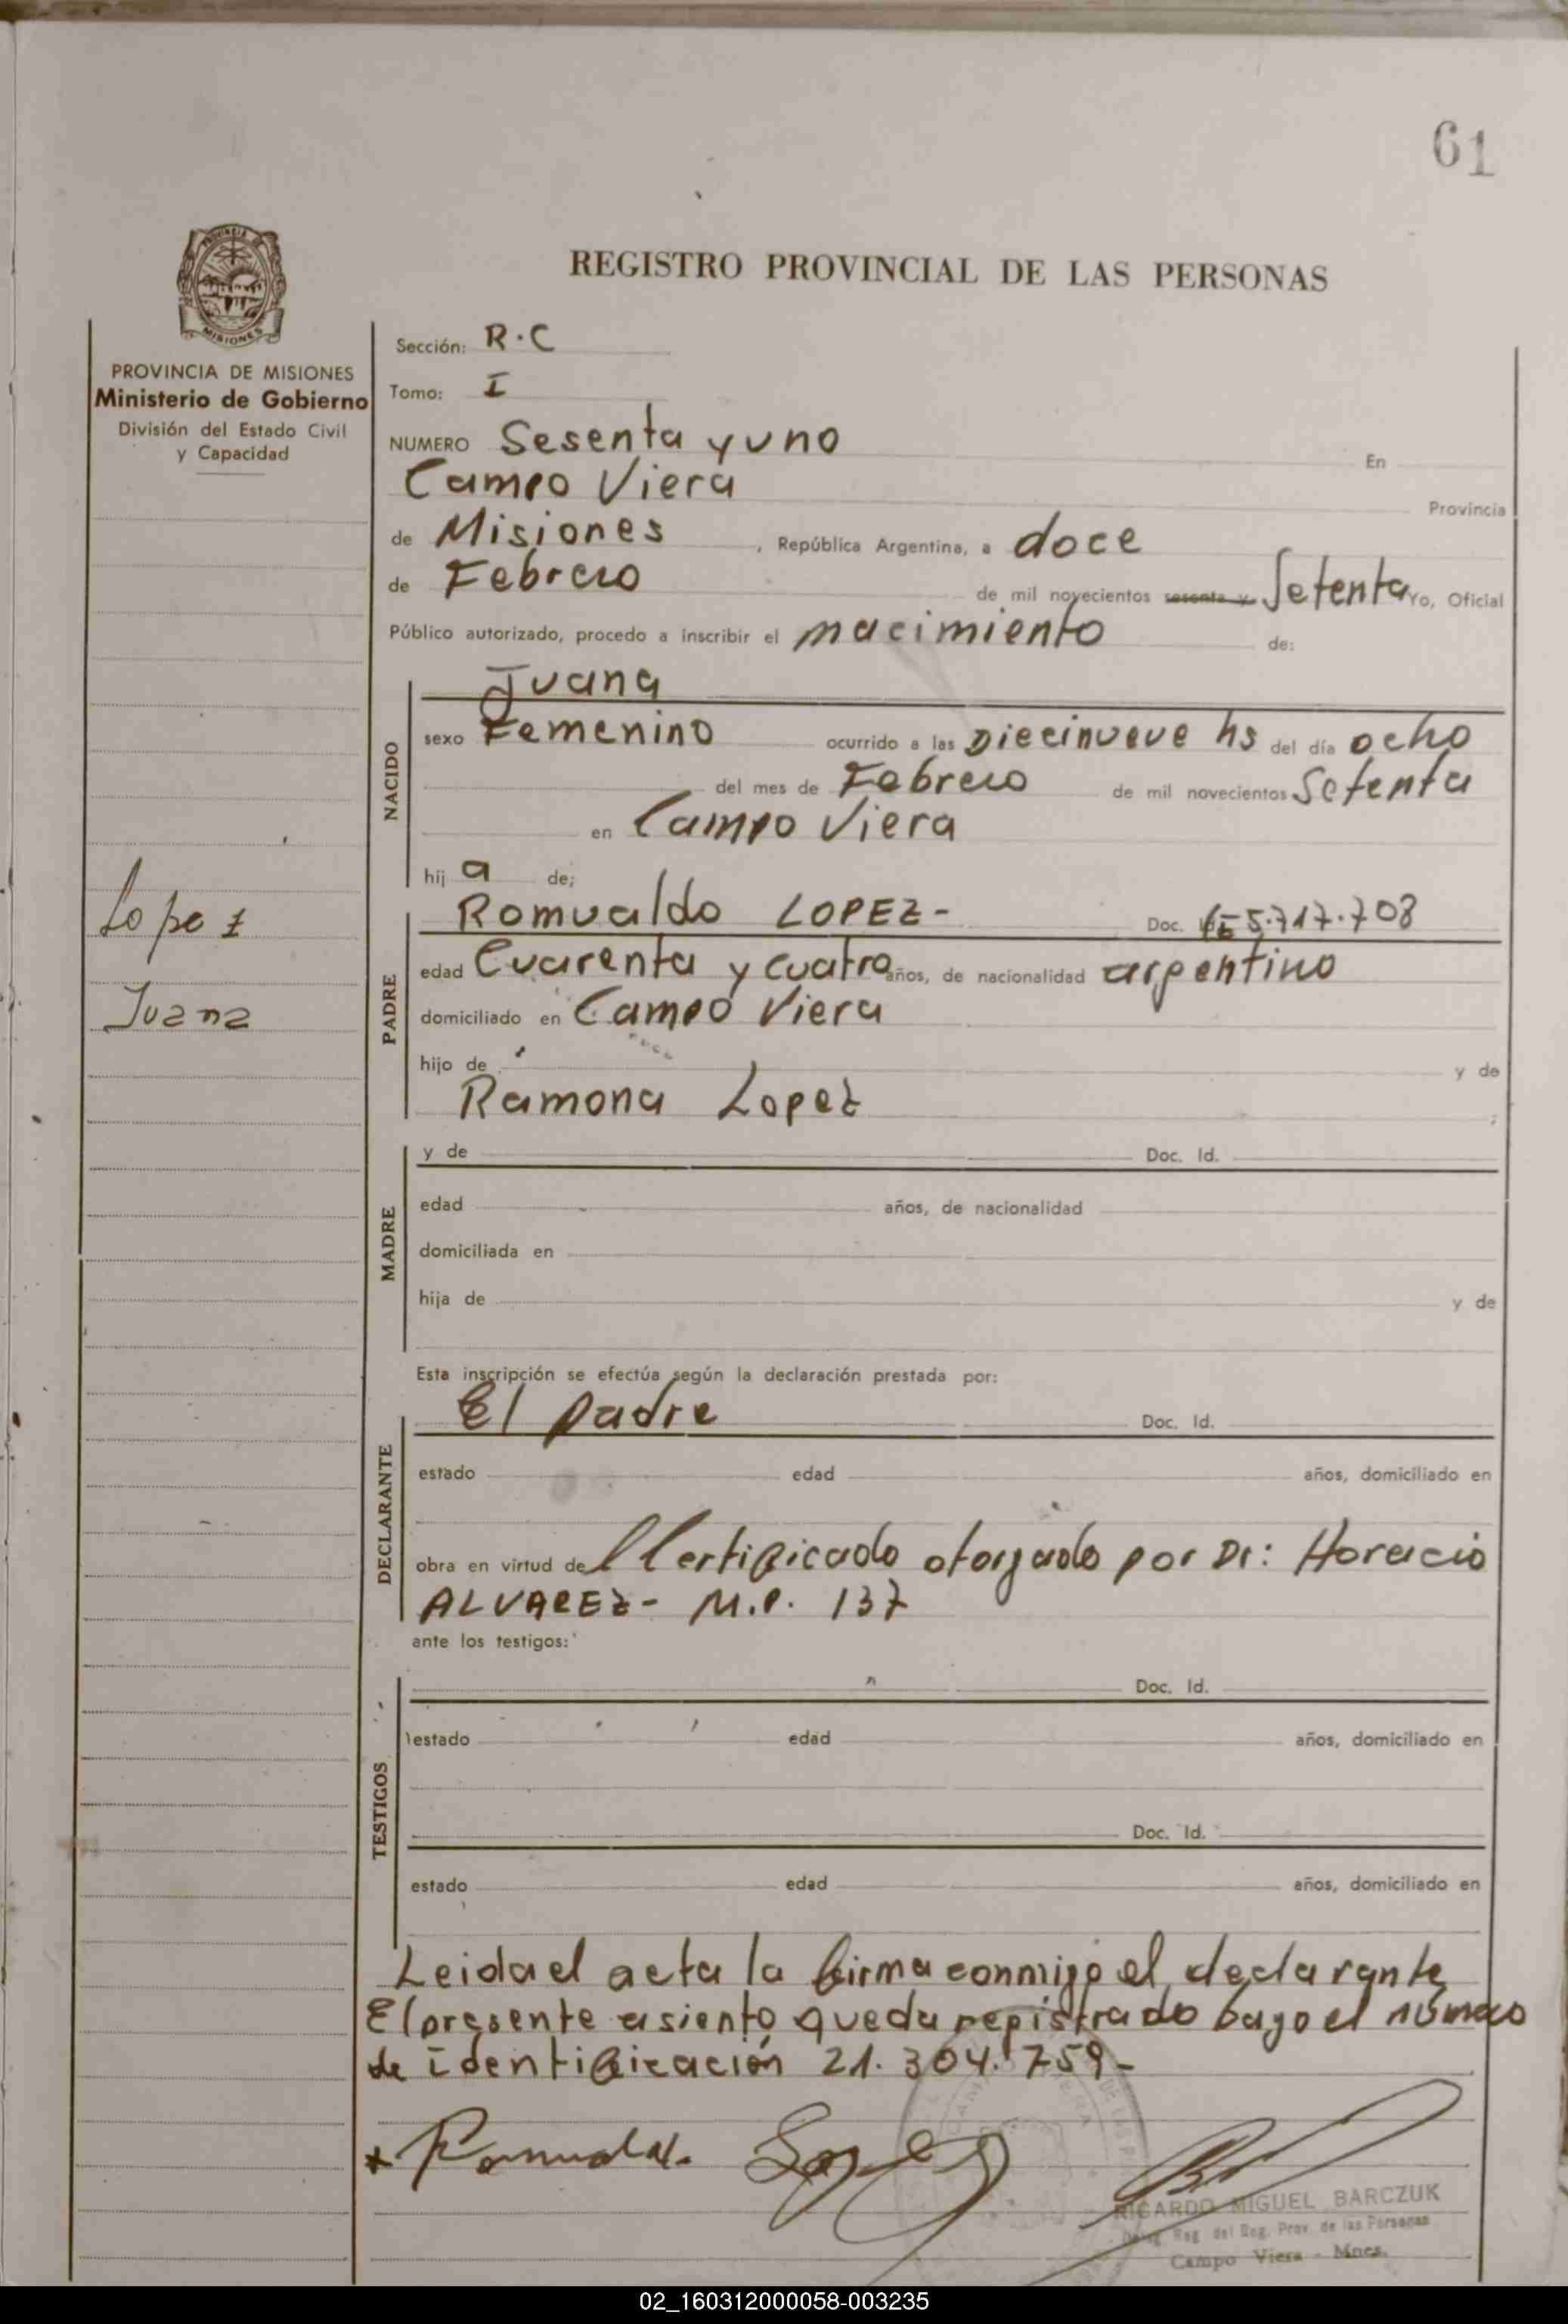 61
REGISTRO PROVINCIAL DE LAS PERSONAS
PROVINCIA DE MISIONES
Ministerio de Gobierno
División del Estado Civil
y Capacidad
Lopez
Juana
Sección: R.C
Tomo: I
NUMERO Sesenta y uno En
Campo Viera Provincia
de Misiones, República Argentina, a doce
de Febrero de mil novecientos sesenta y Setenta Yo, Oficial
Público autorizado, procedo a inscribir el nacimiento de:
NACIDO
Juana
sexo Femenino ocurrido a las Diecinueve hs del día ocho
del mes de Febrero de mil novecientos Setenta
en Campo Viera
hij a de;
PADRE
Romualdo LOPEZ- Doc. 5.717.708
edad Cuarenta y cuatro años, de nacionalidad argentino
domiciliado en Campo Viera
hijo de y de
Ramona Lopez ;
MADRE
y de Doc. Id.
edad años, de nacionalidad
domiciliada en
hija de y de
Esta inscripción se efectúa según la declaración prestada por:
DECLARANTE
El padre Doc. Id.
estado edad años, domiciliado en
obra en virtud de Certificado otorgado por Dr: Horacio
ALVAREZ- M.P. 137
ante los testigos:
TESTIGOS
Doc. Id.
estado edad años, domiciliado en
Doc. Id.
estado edad años, domiciliado en
Leida el acta la firma conmigo el declarante
El presente asiento queda registrado bajo el número
de identificación 21.304.759-
Romualdo Lopez
RICARDO MIGUEL BARCZUK
Deleg. Reg. del Reg. Prov. de las Personas
Campo Viera - Mnes.
02_160312000058-003235